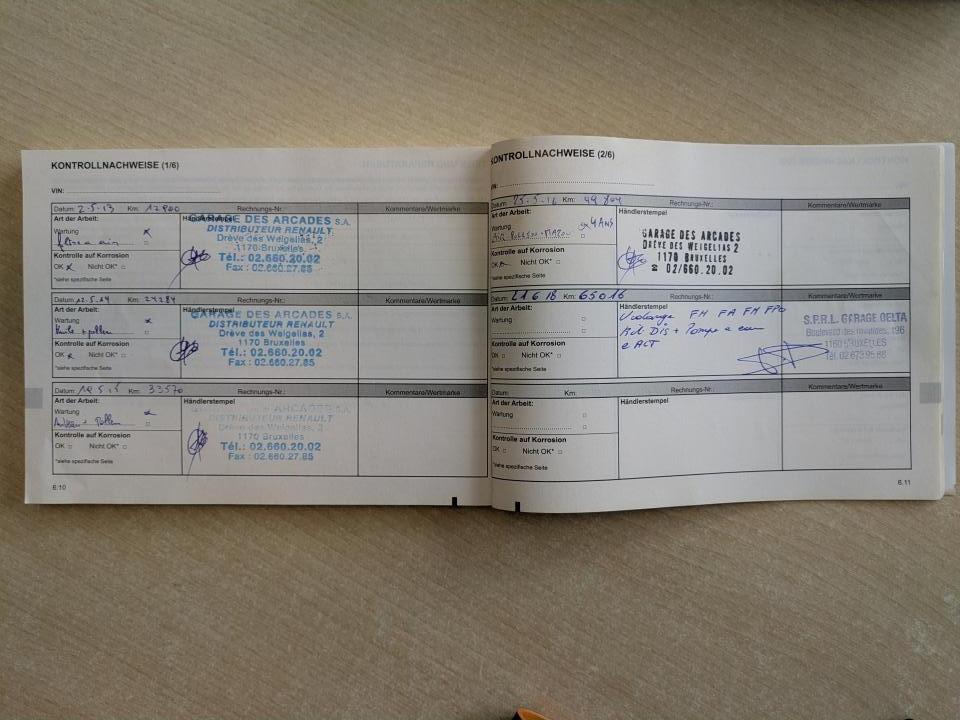 KONTROLLNACHWEISE (1/6)
VIN:
Datum: 2-5-13 Km: 12900 Rechnungs-Nr.: Kommentare/Wertmarke
Art der Arbeit:
Wartung
Kontrolle auf Korrosion
OK Nicht OK*
*siehe spezifische Seite
Händlerstempel
GARAGE DES ARCADES S.A.
DISTRIBUTEUR RENAULT
Drève des Weigelias, 2
1170 Bruxelles
Tél.: 02.660.20.02
Fax : 02.660.27.85
Datum: 12.5.14 Km: 24284 Rechnungs-Nr.: Kommentare/Wertmarke
Art der Arbeit:
Wartung
Huile + pollen
Kontrolle auf Korrosion
OK Nicht OK*
*siehe spezifische Seite
Händlerstempel
GARAGE DES ARCADES S.A.
DISTRIBUTEUR RENAULT
Drève des Weigelias, 2
1170 Bruxelles
Tél.: 02.660.20.02
Fax : 02.660.27.85
Datum: Km: 33570 Rechnungs-Nr.: Kommentare/Wertmarke
Art der Arbeit:
Wartung
+ Pollen
Kontrolle auf Korrosion
OK Nicht OK*
*siehe spezifische Seite
Händlerstempel
GARAGE DES ARCADES S.A.
DISTRIBUTEUR RENAULT
Drève des Weigelias, 2
1170 Bruxelles
Tél.: 02.660.20.02
Fax : 02.660.27.85
6.10
KONTROLLNACHWEISE (2/6)
VIN:
Datum: Km: Rechnungs-Nr.: Kommentare/Wertmarke
Art der Arbeit:
Wartung 4 Ans
Kontrolle auf Korrosion
OK Nicht OK*
*siehe spezifische Seite
Händlerstempel
GARAGE DES ARCADES
DREVE DES WEIGELIAS 2
1170 BRUXELLES
☎ 02/660.20.02
Datum: 21 6 18 Km: 65016 Rechnungs-Nr.: Kommentare/Wertmarke
Art der Arbeit:
Wartung
Kontrolle auf Korrosion
OK Nicht OK*
*siehe spezifische Seite
Händlerstempel
Vidange FH FA FH FPO
Kd Dis + Pompe a eau
e ACT
S.P.R.L. GARAGE DELTA
Boulevard des Invalides, 196
1160 BRUXELLES
Tél. 02 673 95 68
Datum: Km: Rechnungs-Nr.: Kommentare/Wertmarke
Art der Arbeit:
Wartung
Kontrolle auf Korrosion
OK Nicht OK*
*siehe spezifische Seite
Händlerstempel
6.11